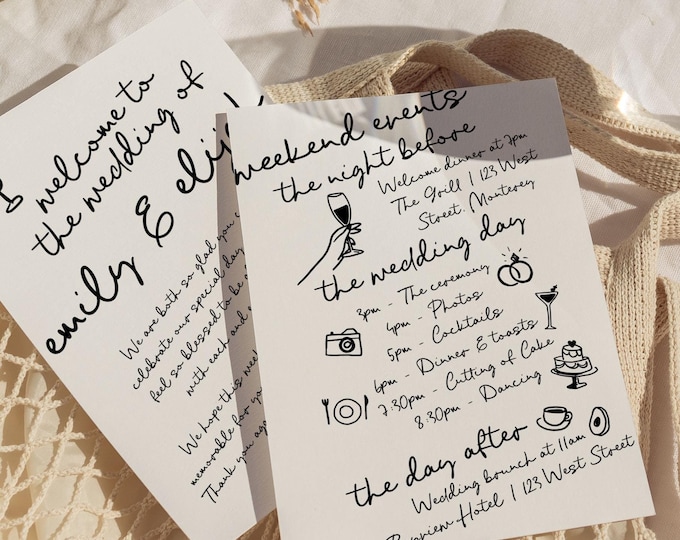 welcome to
the wedding of
emily &
We are both so glad you
celebrate our special day
feel so blessed to be
with each and
We hope this
memorable for
Thank you
weekend events
the night before
Welcome dinner at 7pm
The Grill | 123 West
Street, Monterey
the wedding day
3pm - The ceremony
4pm - Photos
5pm - Cocktails
6pm - Dinner & toasts
7:30pm - Cutting of Cake
8:30pm - Dancing
the day after
Wedding brunch at 11am
Hotel | 123 West Street